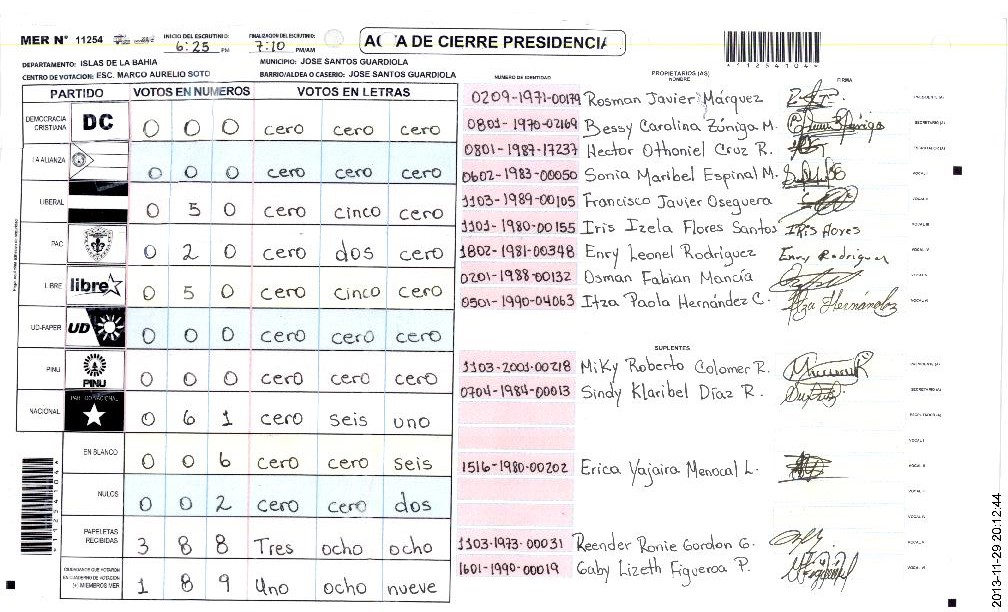 MER N° 11254
INICIO DEL ESCRUTINIO: 6:25 PM
FINALIZACION DEL ESCRUTINIO: 7:10 PM/AM
ACTA DE CIERRE PRESIDENCIA
DEPARTAMENTO: ISLAS DE LA BAHIA
MUNICIPIO: JOSE SANTOS GUARDIOLA
CENTRO DE VOTACION: ESC. MARCO AURELIO SOTO
BARRIO/ALDEA O CASERIO: JOSE SANTOS GUARDIOLA
PARTIDO VOTOS EN NUMEROS VOTOS EN LETRAS
DEMOCRACIA CRISTIANA DC 0 0 0 cero cero cero
LA ALIANZA 0 0 0 cero cero cero
LIBERAL 0 5 0 cero cinco cero
PAC 0 2 0 cero dos cero
LIBRE libre 0 5 0 cero cinco cero
UD-FAPER UD 0 0 0 cero cero cero
PINU PINU 0 0 0 cero cero cero
NACIONAL PARTIDO NACIONAL 0 6 1 cero seis uno
EN BLANCO 0 0 6 cero cero seis
NULOS 0 0 2 cero cero dos
PAPELETAS RECIBIDAS 3 8 8 Tres ocho ocho
CIUDADANOS QUE VOTARON EN CUADERNO DE VOTACION (+) MIEMBROS MER 1 8 9 Uno ocho nueve
NUMERO DE IDENTIDAD PROPIETARIOS (AS) NOMBRE FIRMA
0209-1971-00179 Rosman Javier Márquez
0801-1970-02169 Bessy Carolina Zúniga M.
0801-1987-17237 Hector Othoniel Cruz R.
0602-1983-00050 Sonia Maribel Espinal M. VOCAL I
1103-1989-00105 Francisco Javier Oseguera VOCAL II
1101-1980-00155 Iris Izela Flores Santos IRis flores VOCAL III
1802-1981-00348 Enry Leonel Rodríguez Enry Rodriguez VOCAL IV
0201-1988-00132 Osman Fabian Mancía VOCAL V
0501-1990-04063 Itza Paola Hernández C. Itza Hernández VOCAL VI
SUPLENTES
1103-2001-00218 Miky Roberto Colomer R.
0704-1984-00013 Sindy Klaribel Díaz R.
VOCAL I
1516-1980-00202 Erica Yajaira Menocal L. VOCAL II
1103-1973-00031 Reender Ronie Gordon G. VOCAL V
1601-1990-00019 Gaby Lizeth Figueroa P. VOCAL VI
*11254104*
2013-11-29 20:12:44